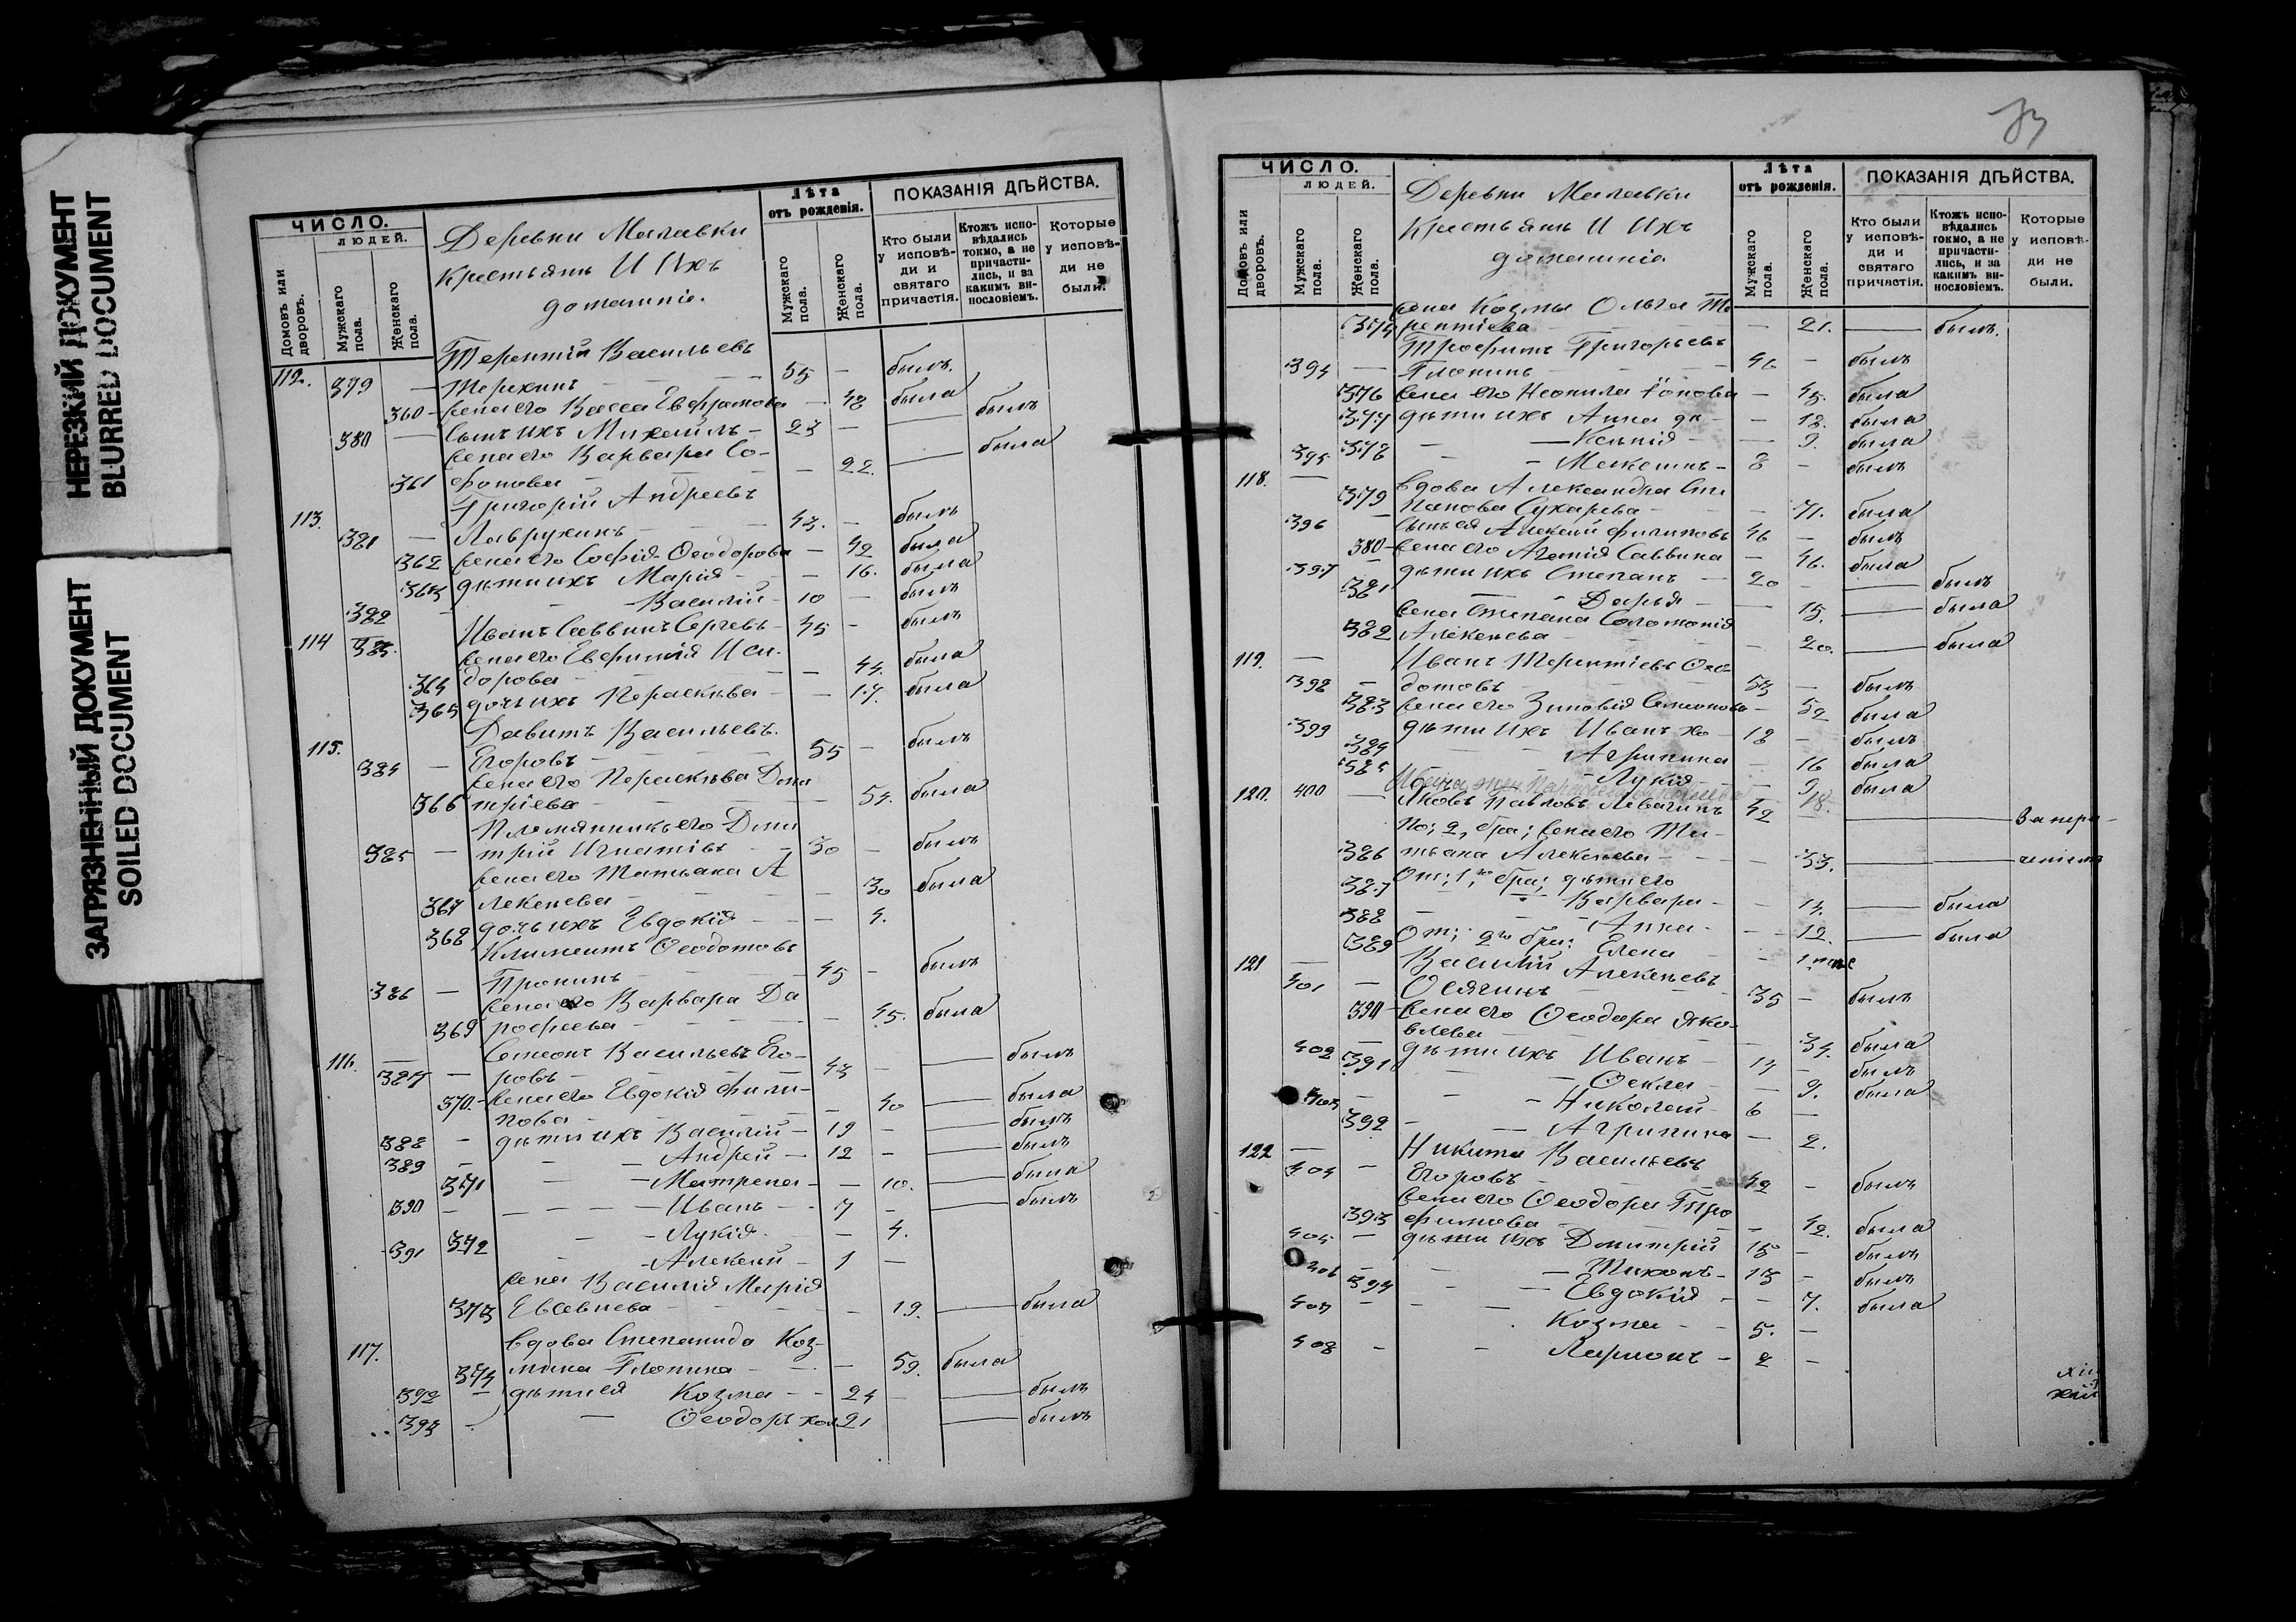 НЕРЕЗКИЙ ДОКУМЕНТ
BLURRED DOCUMENT
ЗАГРЯЗНЕННЫЙ ДОКУМЕНТ
SOILED DOCUMENT
ЧИСЛО.
ЛЮДЕЙ.
Домовъ или дворовъ.
Мужскаго пола.
Женскаго пола.
Деревни
Крестьянъ И Ихъ
домашніе.
Лѣта
отъ рожденія.
Мужскаго пола.
Женскаго пола.
ПОКАЗАНІЯ ДѢЙСТВА.
Кто были у исповѣди и святаго причастія.
Ктожъ исповѣдались токмо, а не причастились, и за какимъ винословіемъ.
Которые у исповѣди не были.
Терентій Васильевъ
112. 379 — Терехинъ — 55 — былъ.
360 — жена его Васса Евфрамова — 48 была
380 — сынъ ихъ Михаилъ — 23 — — былъ
жена его Варвара Со-
361 фонова — — 22. — была
Григорій Андреевъ
113. 381 — Лаврухинъ — 43. — былъ
362 жена его Софія Ѳеодорова — 42 была
363 дѣти ихъ Марія — — 16. была
382 — Василій — 10 — былъ
114 383. Иванъ Саввинъ Сергевъ — 45 — былъ
жена его Евфимія Иси-
364 дорова — — 44. была
365 дочь ихъ Параскѣва — — 17. была
Давитъ Васильевъ.
115. 384 — Егоровъ — 55 — былъ
жена его Параскѣва Дми
366 тріева — — 54. была
Племянникъ его Дми
385 — трій Игнатіевъ — 30 — былъ
жена его Татьяна А
367 лексѣева — — 30 была
368 дочь ихъ Евдокія — — 4.
Климентъ Ѳеодотовъ
386 — Пронинъ — 45 — былъ
жена его Варвара До
369 рофеева — — 45. была
Семеонъ Васильевъ Его-
116. 387 — ровъ — 43 — — былъ
370. — жена его Евдокія Фили-
пова — — 40 — была
388 — дѣти ихъ Василій — 19 — — былъ
389 — Андрей — 12 — — былъ
371 — Матрена — — 10. — была
390 — Иванъ — 7 — — былъ
372 — Лукія — — 4.
391 — Алексѣй — 1 —
жена Василія Марія
373 Евсевиева — — 19. — была
вдова Степанида Коз-
117. 374 мина Глонина — — 59. была
392 — дѣти ея Козма — 24 — — былъ
393 — Ѳеодоръ хол 21 — былъ
ЧИСЛО.
ЛЮДЕЙ.
Домовъ или дворовъ.
Мужскаго пола.
Женскаго пола.
Деревни
Крестьянъ И Ихъ
домашніе
Лѣта
отъ рожденія.
Мужскаго пола.
Женскаго пола.
ПОКАЗАНІЯ ДѢЙСТВА.
Кто были у исповѣди и святаго причастія.
Ктожъ исповѣдались токмо, а не причастились, и за какимъ винословіемъ.
Которые у исповѣди не были.
жена Козмы Ольга Те
рентіева — — 21. — былъ.
Трофимъ Григорьевъ
394 — Глонинъ — 46 — былъ
376 жена его Неонила — 45. была
377 дѣти ихъ Анна дѣ — — 12. была
378 — Ксенія — — 9. была
395 — — 8 — былъ
118. — вдова Александра Сте
379 панова Сухарева — 71. была
396 — сынъ ея Алексѣй Филиповъ 46 — былъ
380 — жена его Агафія Саввина — 46. была
397 — дѣти ихъ Степанъ — 20 — — былъ
381 — Дарья — — 15. — была
жена Степана Соломонія
382 Алексѣева — — 20. — была
119. — Иванъ Терентіевъ Ѳео-
398 — дотовъ — 53 — былъ
383 жена его Зиновія Семионова — 52 была
399 — дѣти ихъ Иванъ хо — 18 — былъ
384 — Агрипина — 16 была
385 — Лукія — 9 была
18.
120. 400 — Яковъ Павловъ 42 — — — За пери-
По; 2, бра; жена его Та-
386 тьяна Алексѣева — — 33. — —
От; 1, го бра; дѣти его
387 — Варвара — — 14. — была
388 — Анна — — 12. — была
389 От; 2го бра: Елена — — 1
121 — Василій Алексѣевъ
401 — — 35 — былъ
390 — жена его Ѳеодора Яко-
влева — — 34. была
402 — дѣти ихъ Иванъ — 14 — былъ
391 — Ѳекла — — 9. была
403 — Николай — 6 —
392 — Агрипина — 2.
122 — Никита Васильевъ
404 — Егоровъ — 42 — былъ
жена его Ѳеодора Тро
393 фимова — — 42. была
405 — дѣти ихъ Димитрій 15 — былъ
406 — Тихонъ — 13 — былъ
394 — Евдокія — — 7. была
407 — Козма — 5. —
408 — Ларионъ — 2 —